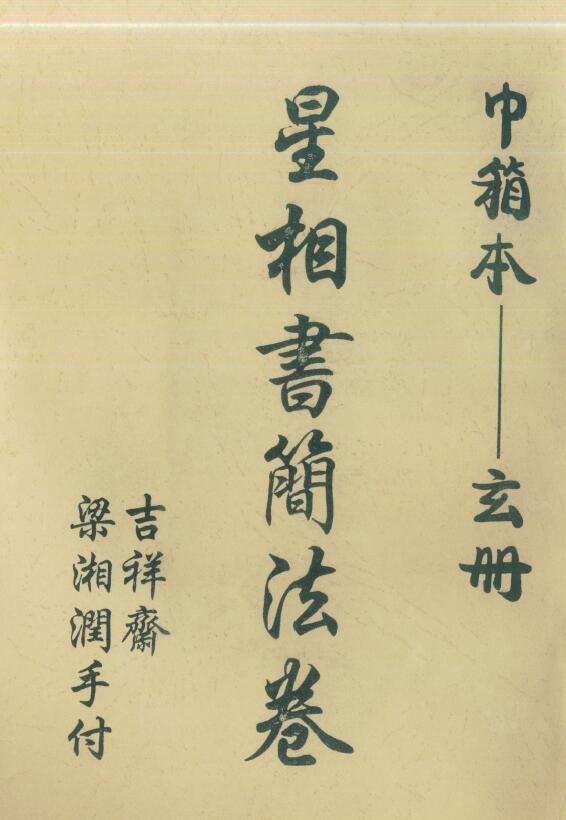 巾箱本——玄册
星相書簡法卷
吉祥齋
梁湘潤手付